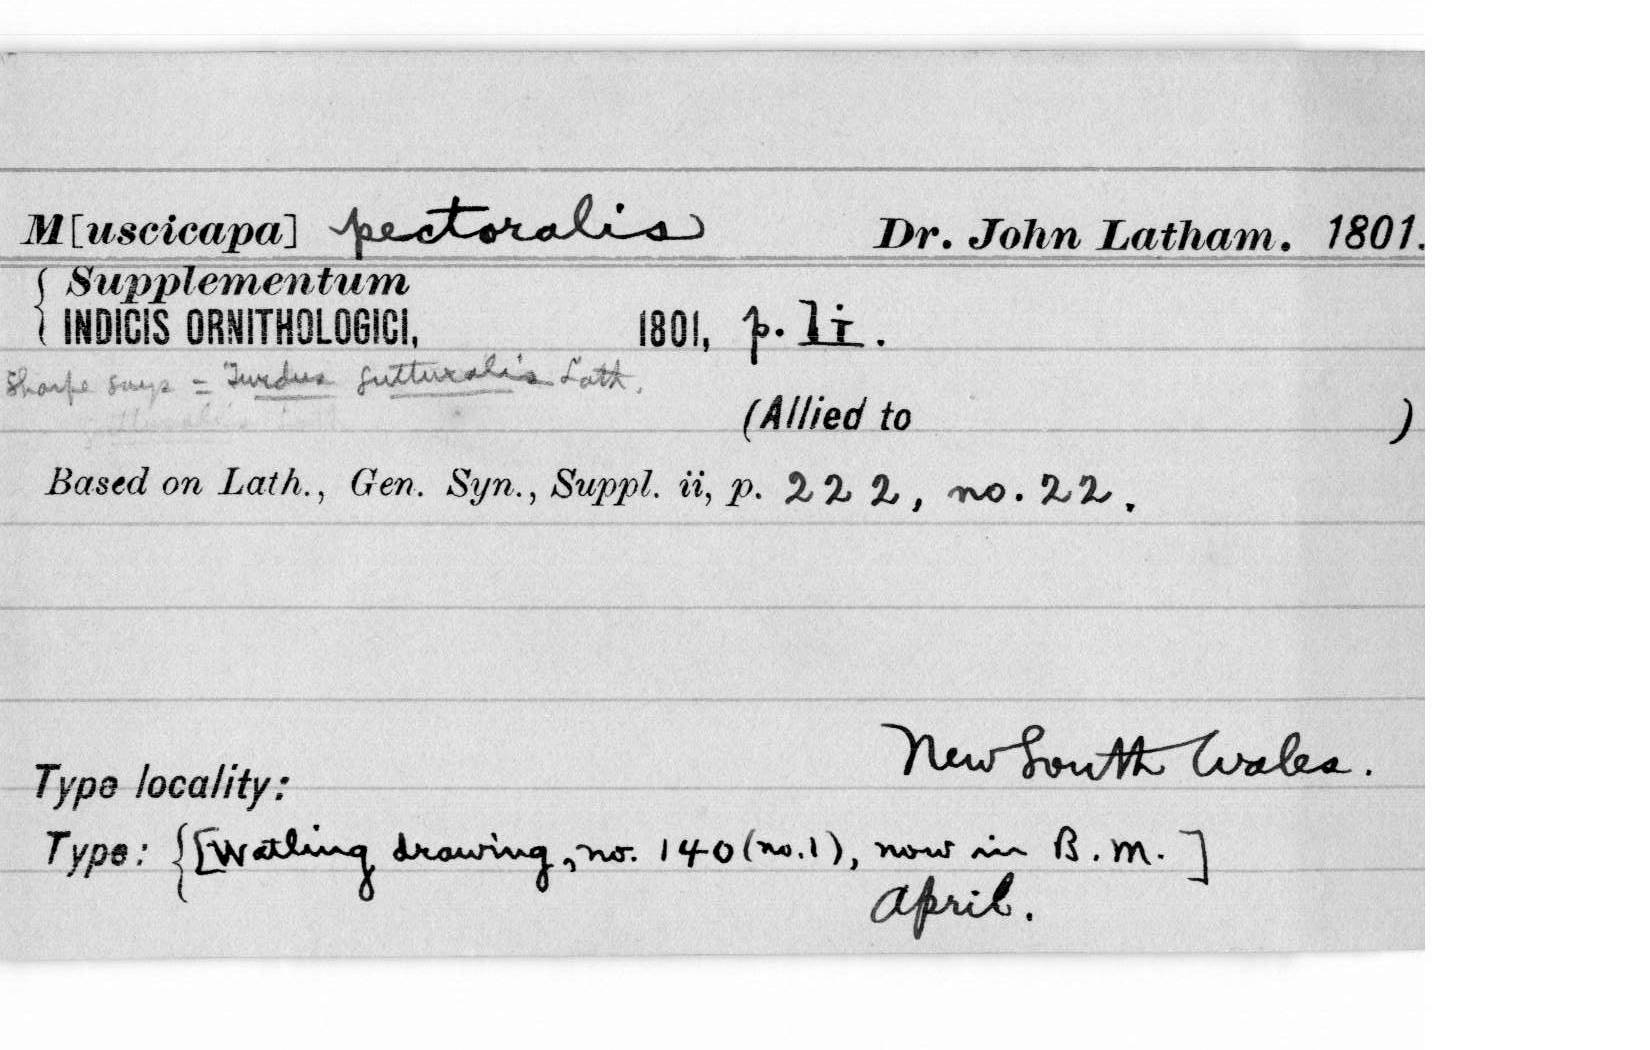 M[uscicapa] pectoralis Dr. John Latham. 1801.
{ Supplementum
INDICIS ORNITHOLOGICI, 1801, p. li.
Sharpe says = Turdus gutturalis Lath.
(Allied to )
Based on Lath., Gen. Syn., Suppl. ii, p. 222, no. 22.
New South Wales.
Type locality:
Type: {[Watling drawing, no. 140 (no. 1), now in B. M.]
April.